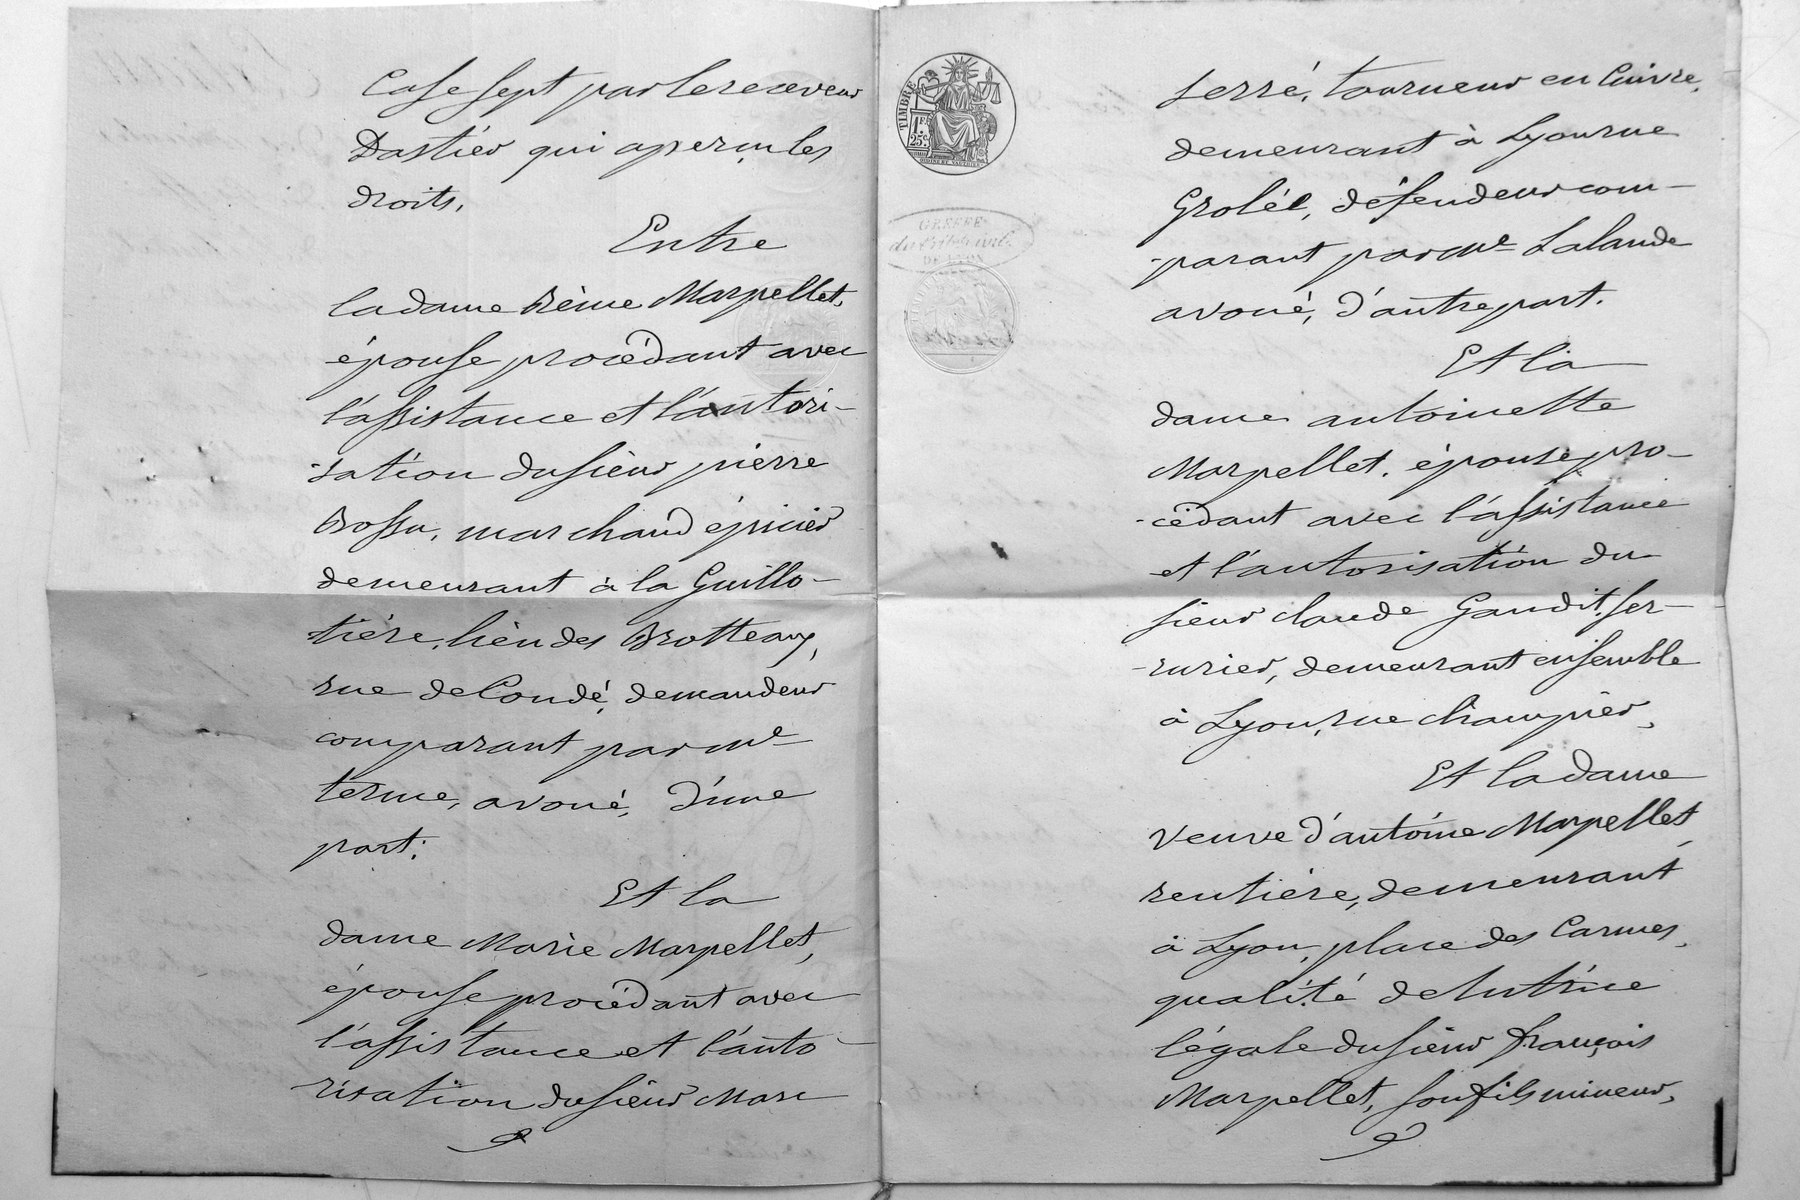 Case sept par le receveur
Dastier qui a perçu les
droits.
Entre
la dame Rème Marpellet,
épouse procédant avec
l'assistance et l'autori-
-sation du sieur pierre
Brossu, marchand épicier
demeurant à la Guillo-
tière, lieu des Brotteaux,
rue de Condé, demandeur
comparant par Me
terme, avoué, d'une
part;
Et la
dame Marie Marpellet,
épouse procédant avec
l'assistance et l'auto-
risation du sieur Marc
TIMBRE
1 Fr
25 c
GREFFE
du Tribl civil
DE LYON
serré, tourneur en Cuivre,
demeurant à Lyon rue
Grolée, défendeur com-
-parant par Me Lalande
avoué, d'autre part.
Et la
dame antoinette
Marpellet, épouse pro-
-cédant avec l'assistance
et l'autorisation du
sieur claude Gaudit, ser-
-rurier, demeurant ensemble
à Lyon, rue champier,
Et la dame
veuve d'antoine Marpellet,
rentière, demeurant
à Lyon, place des Carmes,
qualité de tutrice
légale du sieur françois
Marpellet, son fils mineur,